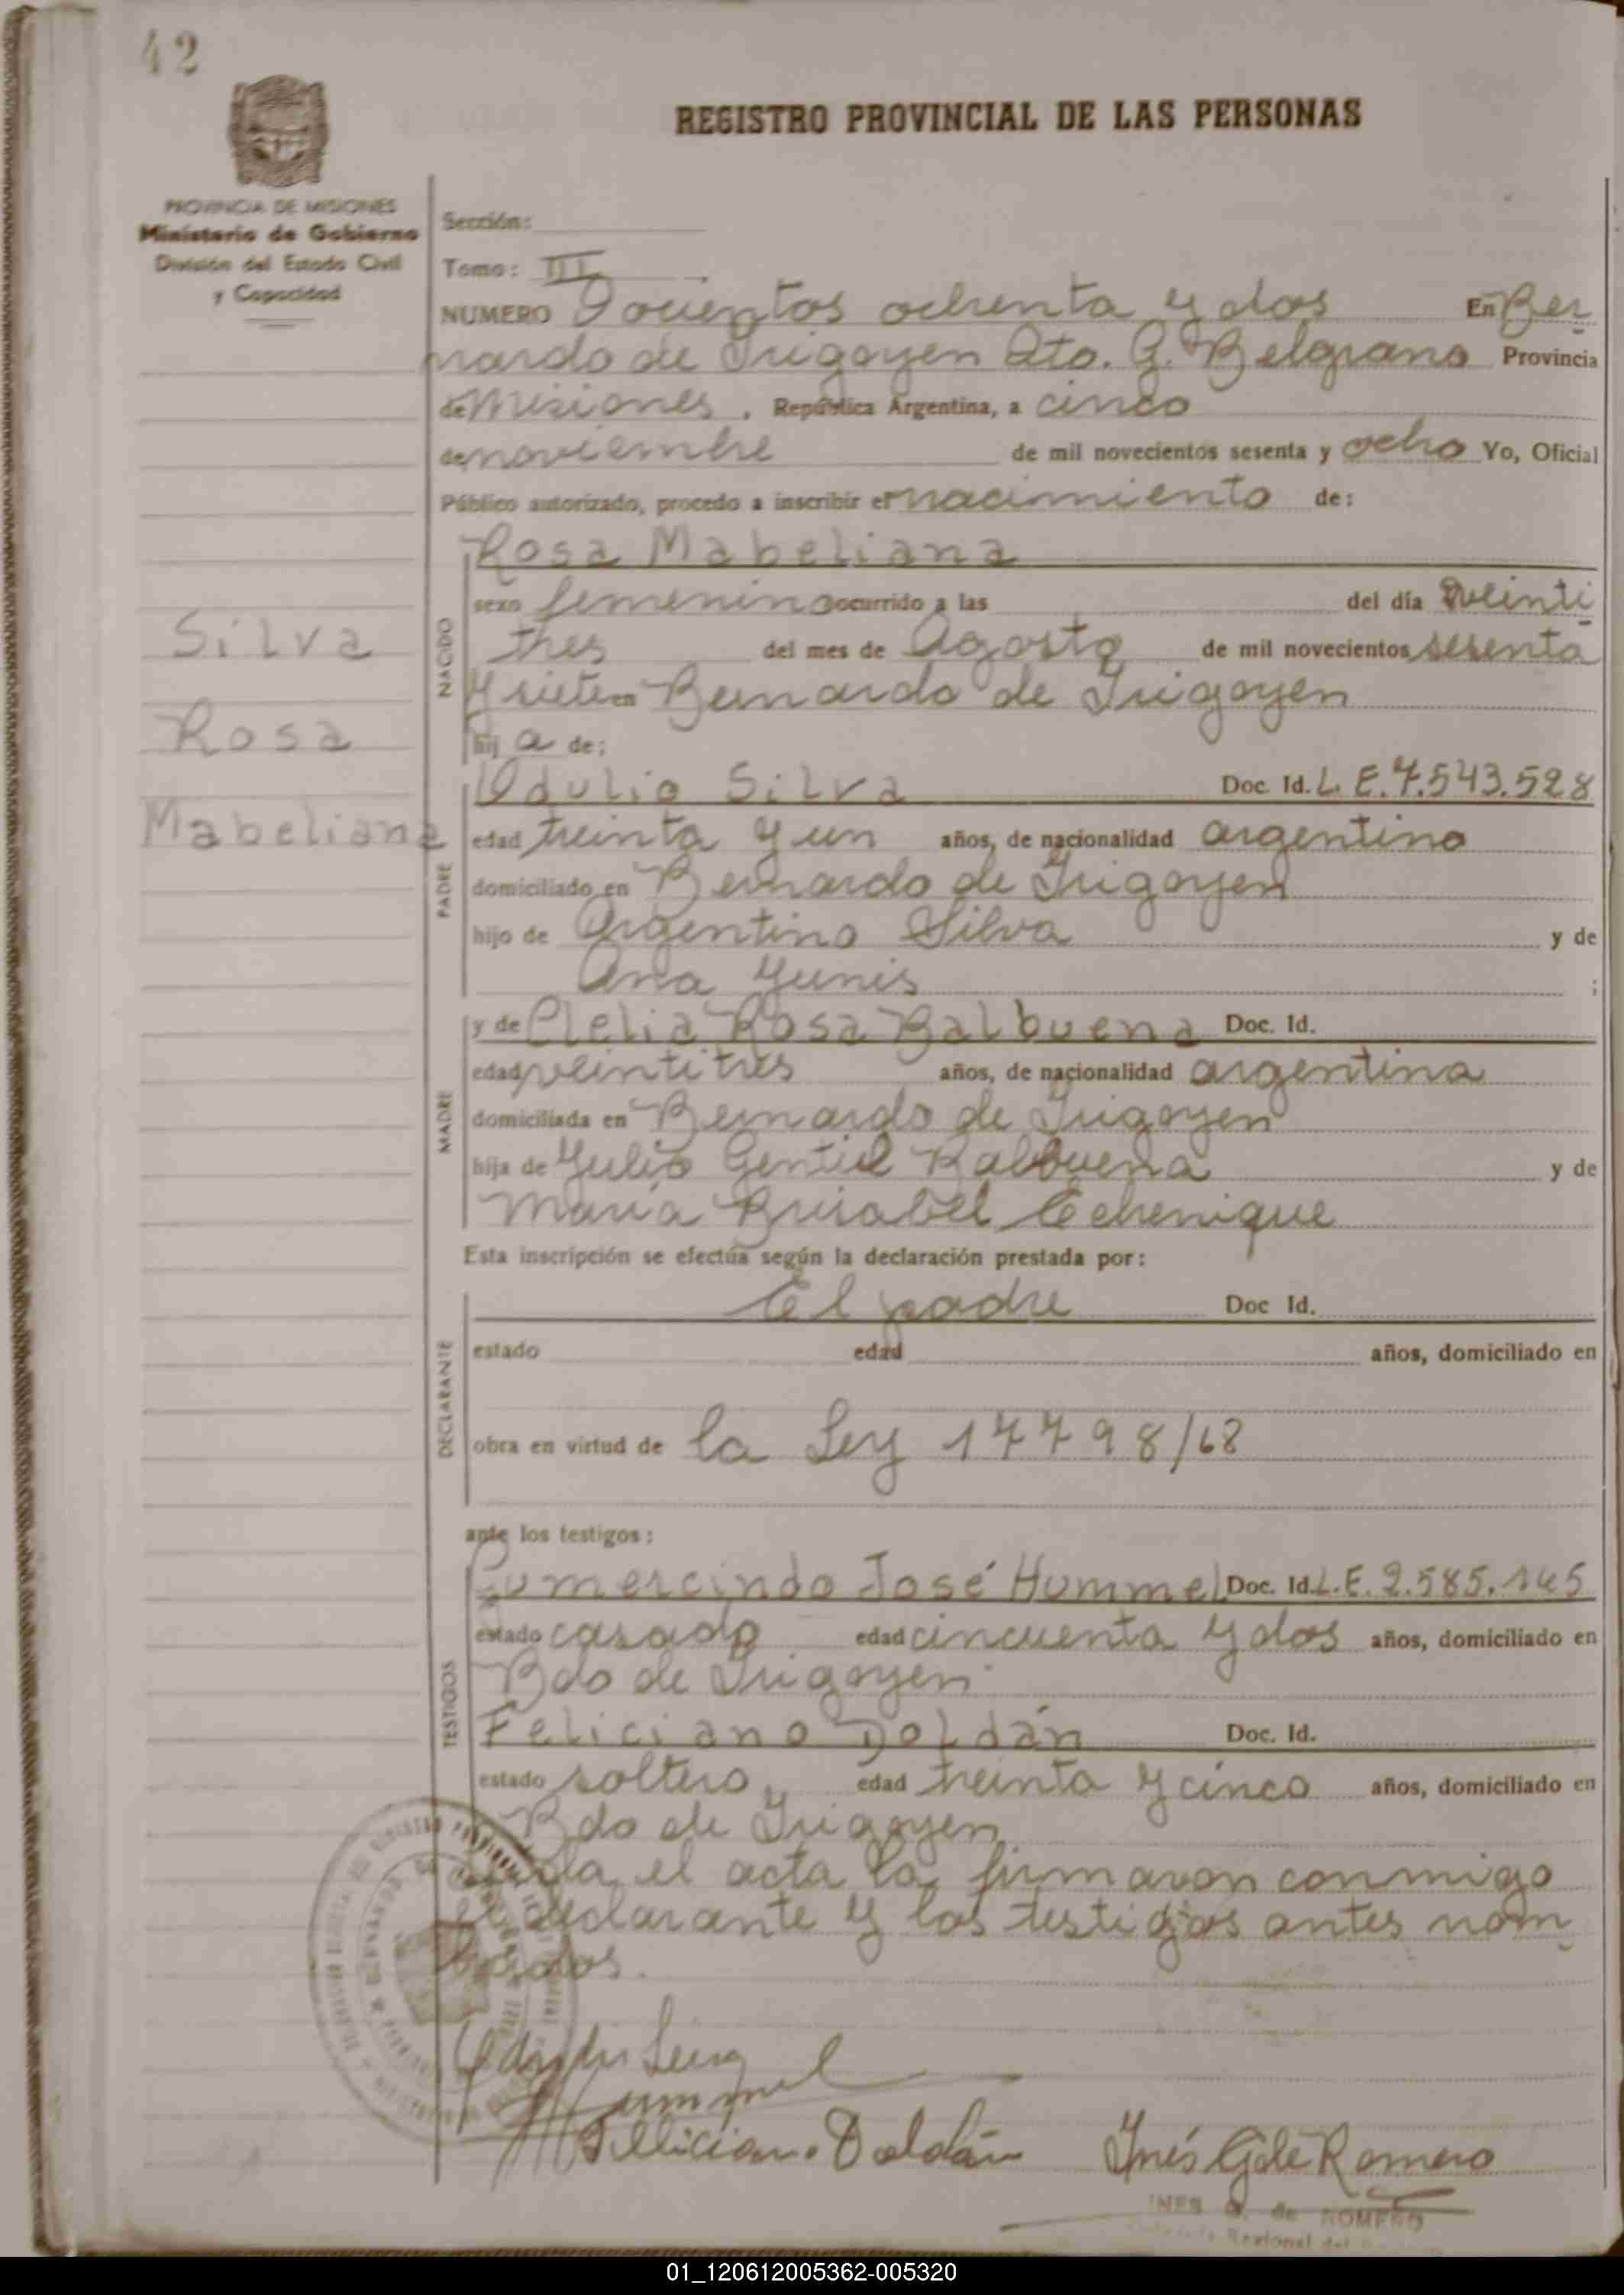 42
REGISTRO PROVINCIAL DE LAS PERSONAS
PROVINCIA DE MISIONES
Ministerio de Gobierno
División del Estado Civil
y Capacidad
Sección:
Tomo: III
NUMERO Docientos ochenta y dos En Ber
nardo de Irigoyen Dto. G. Belgrano Provincia
de Misiones. República Argentina, a cinco
de noviembre de mil novecientos sesenta y ocho Yo, Oficial
Público autorizado, procedo a inscribir el nacimiento de:
Rosa Mabeliana
NACIDO
sexo femenino ocurrido a las del día veinti
tres del mes de Agosto de mil novecientos sesenta
y siete en Bernardo de Irigoyen
hij a de:
Silva
Rosa
Mabeliana
PADRE
Odulio Silva Doc. Id. L. E. 7.543.528
edad treinta y un años, de nacionalidad argentino
domiciliado en Bernardo de Irigoyen
hijo de Argentino Silva y de
Ana Yunis ;
MADRE
y de Clelia Rosa Balbuena Doc. Id.
edad veintitres años, de nacionalidad argentina
domiciliada en Bernardo de Irigoyen
hija de Julio Gentil Balbuena y de
Maria Brisabel Echenique
Esta inscripción se efectúa según la declaración prestada por:
DECLARANTE
El padre Doc Id.
estado edad años, domiciliado en
obra en virtud de la Ley 17798/68
ante los testigos:
TESTIGOS
Gumercindo José Hummel Doc. Id. L.E. 2.585.145
estado casado edad cincuenta y dos años, domiciliado en
Bdo de Irigoyen
Feliciano Doldán Doc. Id.
estado soltero, edad treinta y cinco años, domiciliado en
Bdo de Irigoyen
el acta la firmaron conmigo
el declarante y los testigos antes nom
brados.
Hummel
Felliciano Doldán Inés G de Romero
INES G. de ROMERO
Regional del
01_120612005362-005320